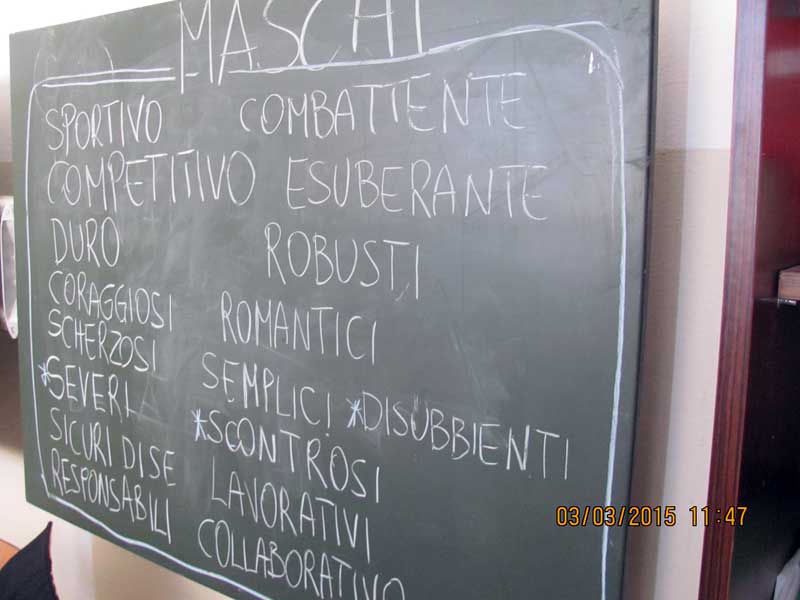 MASCHI
SPORTIVO COMBATTENTE
COMPETITIVO ESUBERANTE
DURO ROBUSTI
CORAGGIOSI ROMANTICI
SCHERZOSI SEMPLICI *DISUBBIENTI
*SEVERI *SCONTROSI
SICURI DI SE LAVORATIVI
RESPONSABILI COLLABORATIVO
03/03/2015 11:47